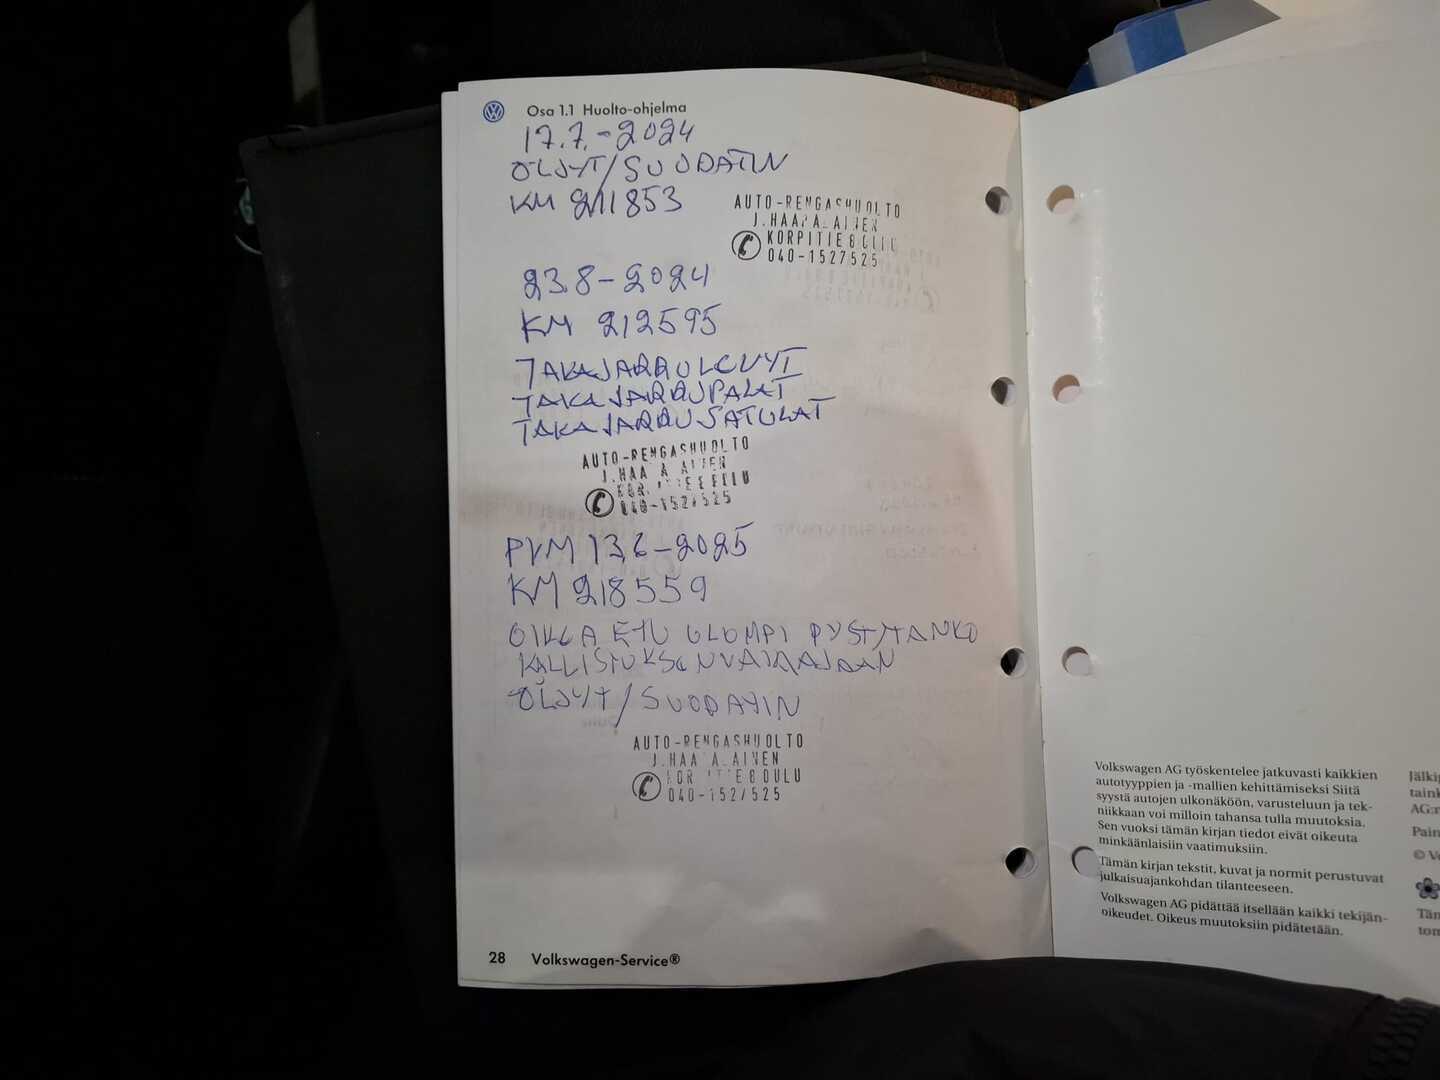 Osa 1.1 Huolto-ohjelma
17.7.-2024
ÖLJYT/SUODATIN
KM 211853
AUTO-RENGASHUOLTO
J.HAAPALAINEN
KORPITIE 8 OULU
040-1527525
23.8-2024
KM 212595
TAKAJARRULEVYT
TAKAJARRUPALAT
TAKAJARRUSATULAT
AUTO-RENGASHUOLTO
J.HAAPALAINEN
KORPITIE 8 OULU
040-1527525
PVM 13.6-2025
KM 218559
OIKEA ETU ULOMPI PYSTYTANKO
KALLISTUKSENVAIMAJAAN
ÖLJYT/SUODATIN
AUTO-RENGASHUOLTO
J.HAAPALAINEN
KORPITIE 8 OULU
040-1527525
28 Volkswagen-Service®
Volkswagen AG työskentelee jatkuvasti kaikkien
autotyyppien ja -mallien kehittämiseksi Siitä
syystä autojen ulkonäköön, varusteluun ja tek-
niikkaan voi milloin tahansa tulla muutoksia.
Sen vuoksi tämän kirjan tiedot eivät oikeuta
minkäänlaisiin vaatimuksiin.
Tämän kirjan tekstit, kuvat ja normit perustuvat
julkaisuajankohdan tilanteeseen.
Volkswagen AG pidättää itsellään kaikki tekijän-
oikeudet. Oikeus muutoksiin pidätetään.